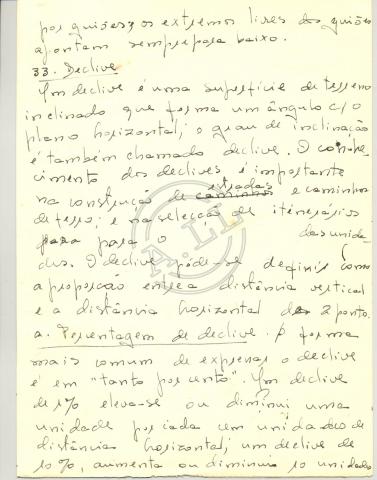 por guisões; os extremos livres dos guisões
apontam sempre para baixo.
33. Declive
Um declive é uma superfície de terreno
inclinado que forma um ângulo c/o
plano horizontal; o grau de inclinação
é também chamado declive. O conhe-
cimento dos declives é importante
na construção de estradas e caminhos
de ferro; e na selecção de itinerários
para o das unida
des. O declive pode-se definir como
a proporção entre a distância vertical
e a distância horizontal de 2 pontos.
a. Percentagem de declive. A forma
mais comum de expressar o declive
é em "tanto por cento". Um declive
de 1% eleva-se ou diminui uma
unidade por cada cem unidades de
distância horizontal; um declive de
10%, aumenta ou diminui 10 unidades